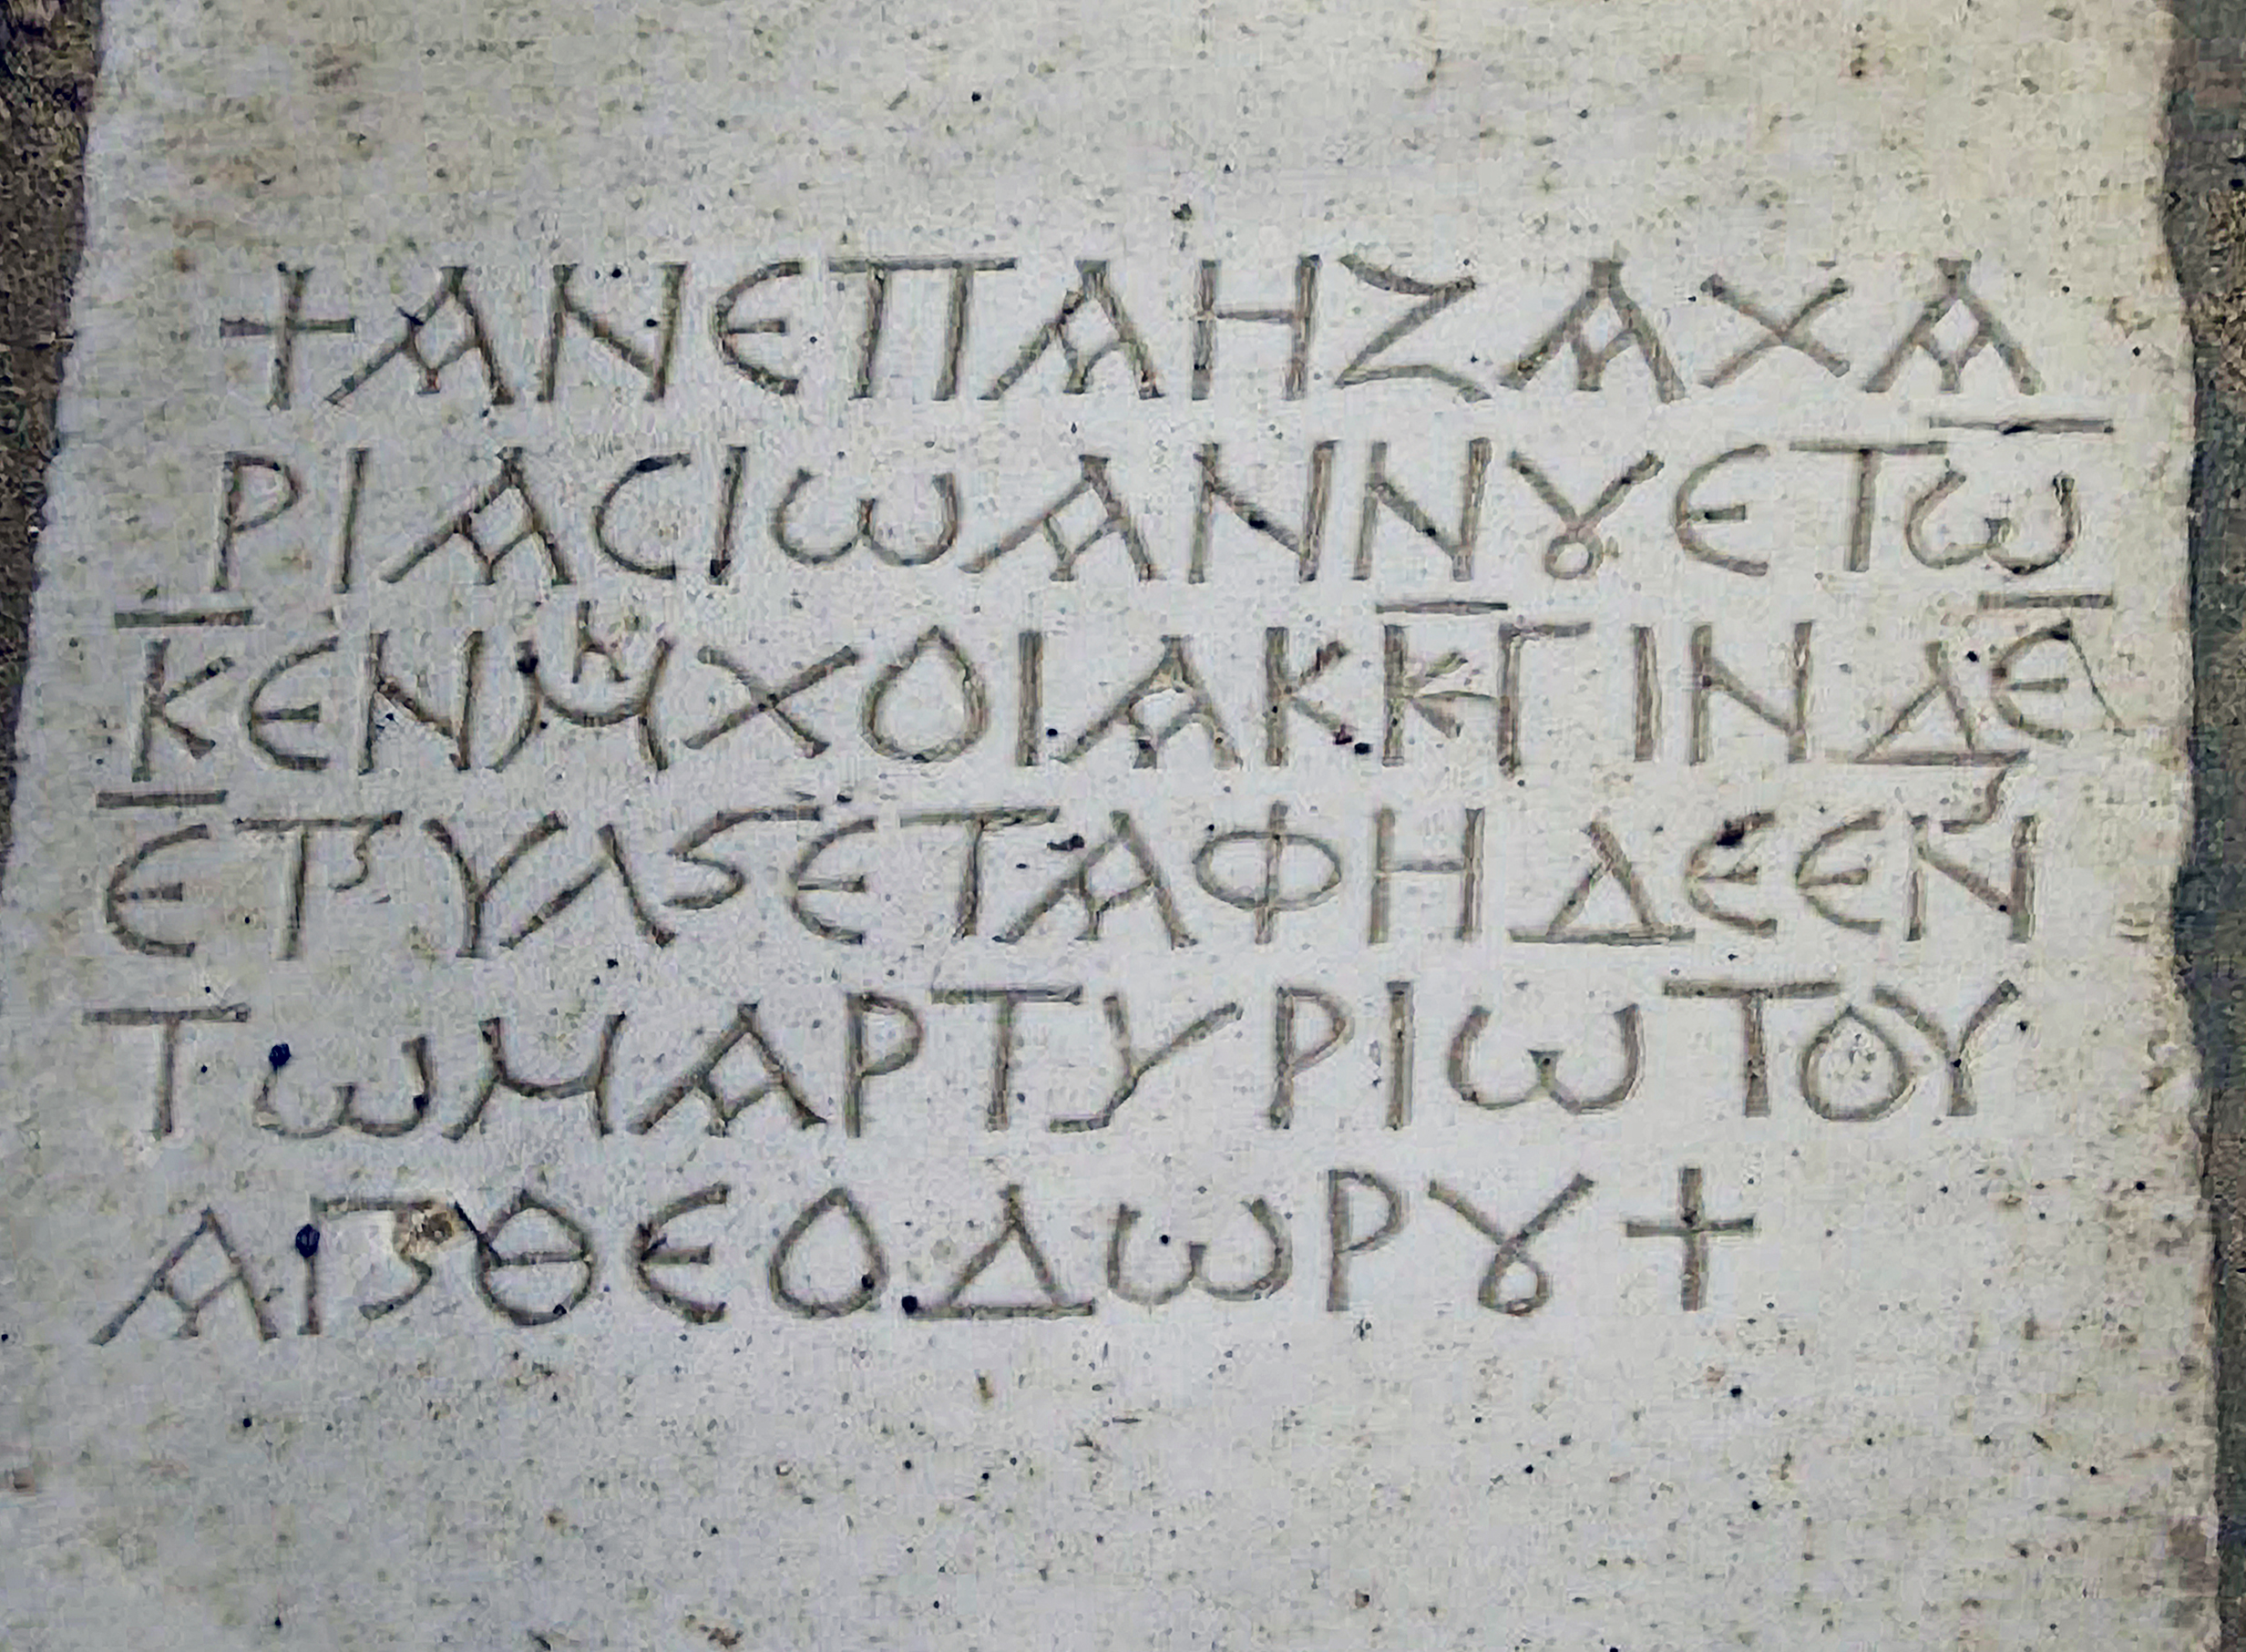 +ΑΝΕΠΑΗΖΑΧΑ
ΡΙΑCΙωΑΝΝȣΕΤω̅
Κ̅ΕΝΜΚΧΟΙΑΚΚ̅ΓΙΝΔΕ̅
Ε̅ΤϚΥΛϚΕΤΑΦΗΔΕΕΝ
ΤωΜΑΡΤΥΡΙωΤΟΥ
ΑΓΙϚΘΕΟΔωΡȣ+